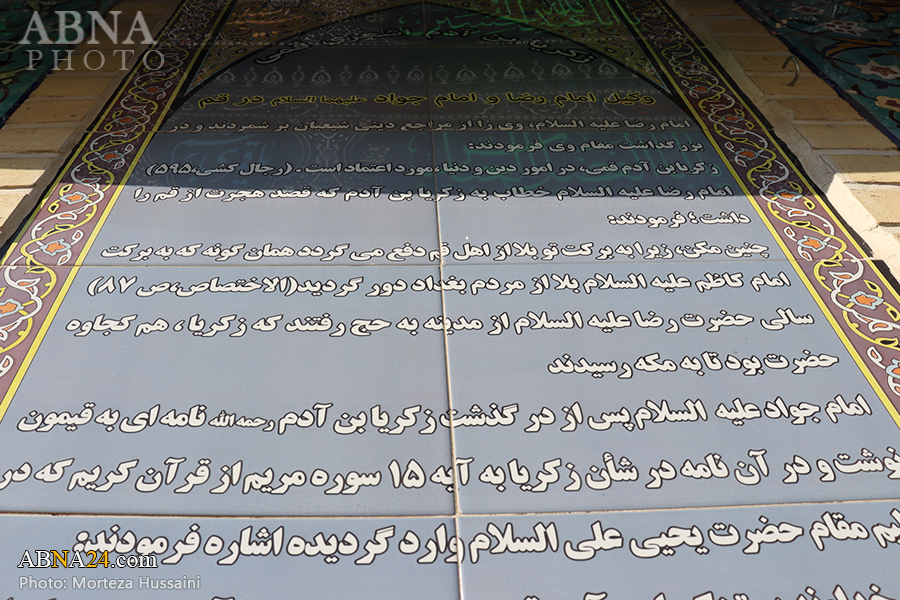 ABNA
PHOTO
زکریا بن آدم اشعری قمی
وکیل امام رضا و امام جواد علیهما السلام در قم
امام رضا علیه السلام، وی را از مراجع دینی شیعیان بر شمردند و در
بزرگداشت مقام وی فرمودند:
زکریا بن آدم قمی، در امور دین و دنیا، مورد اعتماد است. (رجال کشی، ۵۹۵)
امام رضا علیه السلام خطاب به زکریا بن آدم که قصد هجرت از قم را
داشت؛ فرمودند:
چنین مکن، زیرا به برکت تو بلا از اهل قم دفع می گردد همان گونه که به برکت
امام کاظم علیه السلام بلا از مردم بغداد دور گردید(الاختصاص،ص ۸۷)
سالی حضرت رضا علیه السلام از مدینه به حج رفتند که زکریا، هم کجاوه
حضرت بود تا به مکه رسیدند
امام جواد علیه السلام پس از در گذشت زکریا بن آدم رحمه الله نامه ای به قیمون
نوشت و در آن نامه در شأن زکریا به آیه ۱۵ سوره مریم از قرآن کریم که در
مقام حضرت یحیی علی السلام وارد گردیده اشاره فرمودند:
ABNA24.com
Photo: Morteza Hussaini